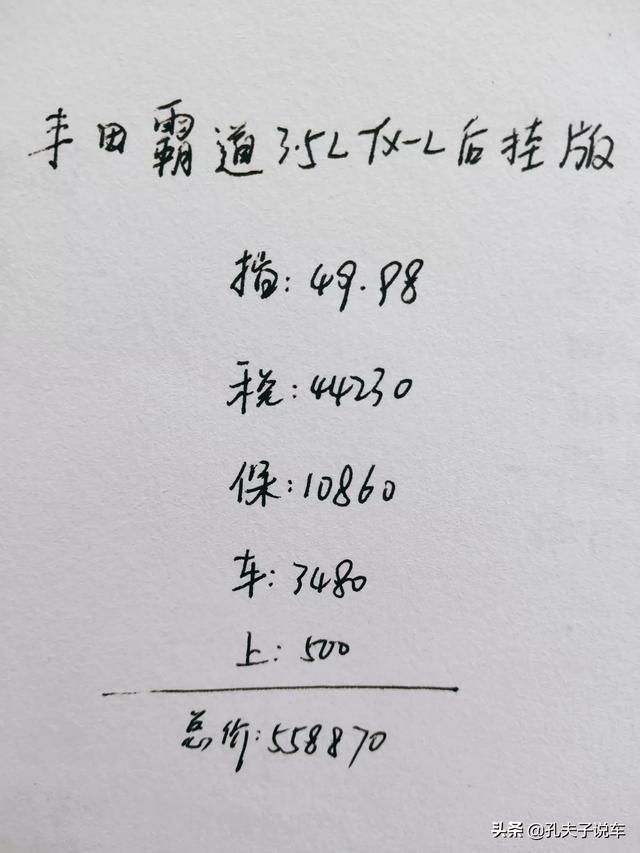 丰田霸道3.5L TX-L后挂版
指: 49.98
税: 44230
保: 10860
车: 3480
上: 500
总价: 558870
头条 @孔夫子说车